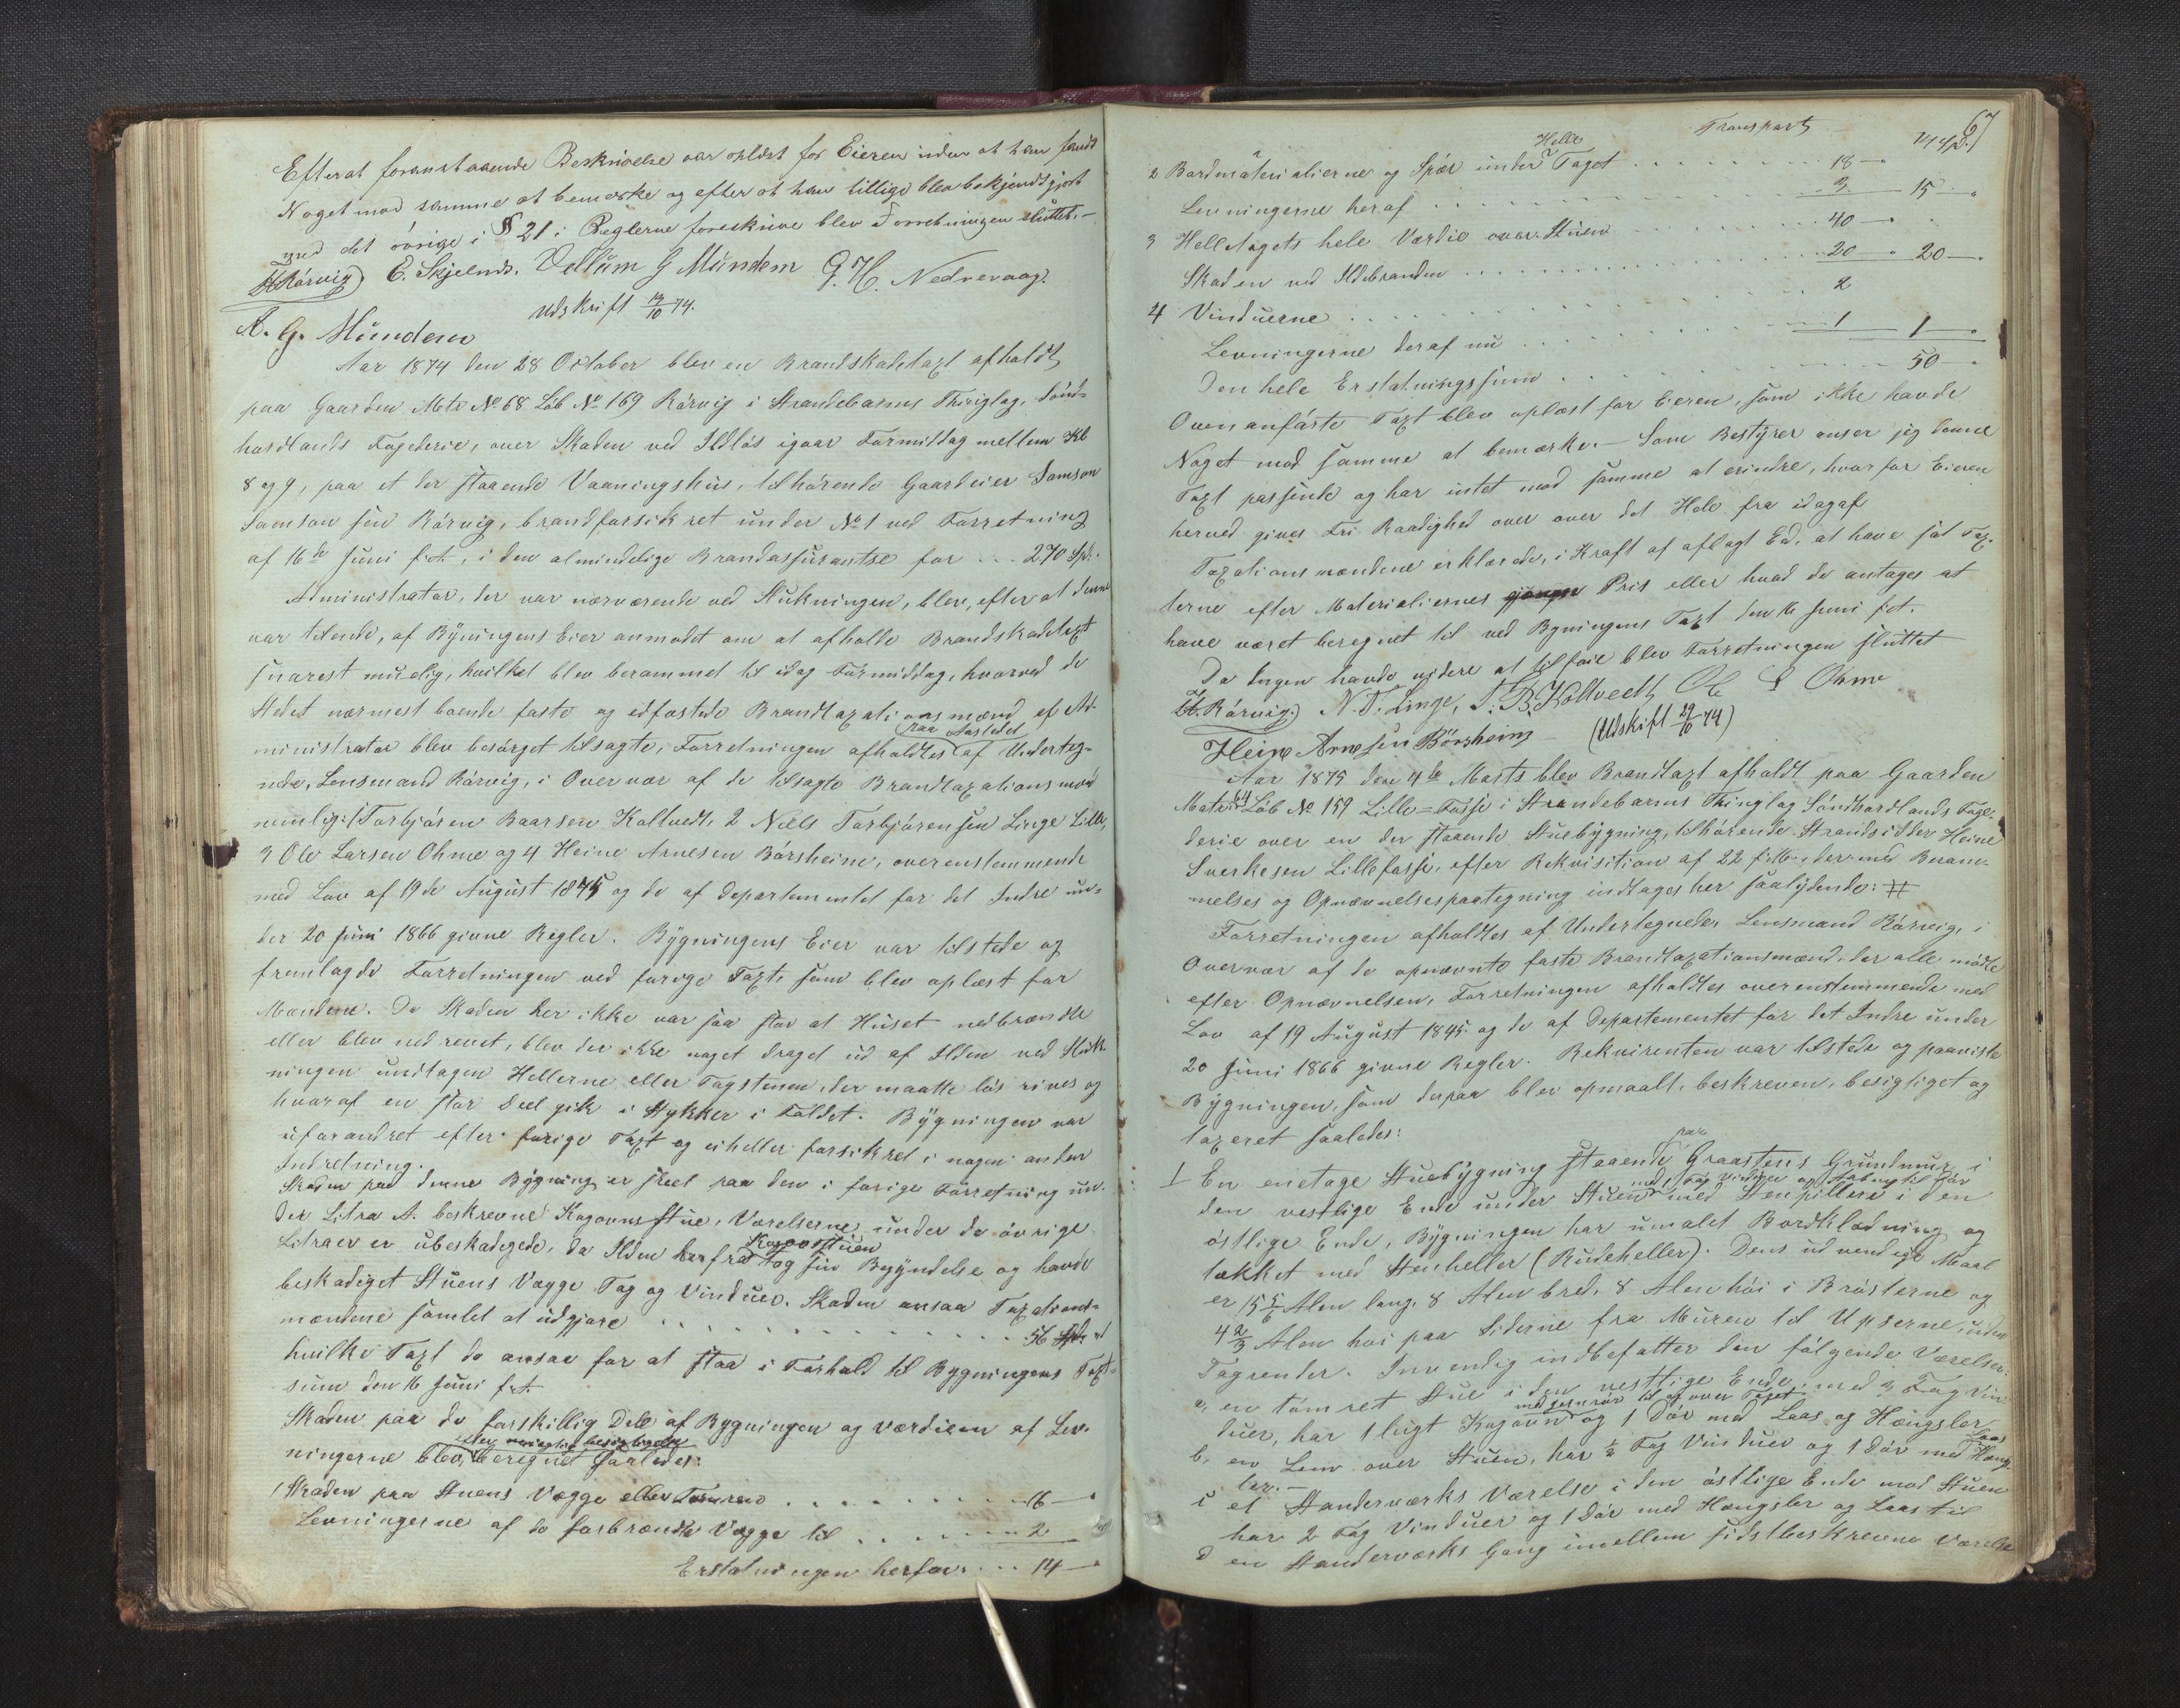 Efterat foranstaaende Beskrivelse var oplæst for Eieren uden at han fandt
Noget mod samme at bemærke og efter at han tillige blev bekjendtgjort
med det øvrige i § 21 i Reglerne foreskrevne blev Forretningen sluttet.-
H Rörvig) E. Skjelnds. Vellum G Mundem G. H. Nedrevaag.
A. G. Mundem Udskrift 14/10 74.
Aar 1874 den 28 October blev en Brandskadetaxt afholdt
paa Gaarden Mats No 68 Løb No 169 Rörvig i Strandebarms Thinglag, Sönd-
hordlands Fogderie, over Skaden ved Ildløs igaar Formiddag mellem Kl
8 og 9, paa et der staaende Vaaningshus, tilhørende Gaardeier Samson
Samsonsen Rörvig, brandforsikret under No 1 ved Forretning
af 16de Juni f.A., i den almindelige Brandassurantse for ... 270 Sp.
Administrator, der var nærværende ved Slukningen, blev, efter at denne
var tilende, af Bygningens Eier anmodet om at afholde Brandskadetaxt
snarest muelig, hvilket blev berammet til idag Formiddag, hvorved de
Stedet nærmest boende faste og edfæstede Brandtaxationsmænd af Ad-
ministrator blev besørget tilsagte, Forretningen afholdtes paa Aastedet af Underteg-
nede, Lensmand Rörvig, i Overvær af de tilsagte Brandtaxationsmænd
nemlig: 1 Torbjören Baarsen Koltvedt, 2 Niels Torbjörensen Linge Lille,
3 Ole Larsen Ohme og 4 Heine Arnesen Börsheim, overenstemmende
med Lov af 19de August 1845 og de af Departementet for det Indre un-
der 20 Juni 1866 givne Regler. Bygningens Eier var tilstede og
fremlagde Forretningen ved forige Taxt, som blev oplæst for
Mændene. Da Skaden her ikke var saa stor at Huset nedbrændte
eller blev nedrevet, blev der ikke noget draget ud af Ilden ved Sluk-
ningen undtagen Hellerne eller Tagstenene, der maatte løsrives og
hvoraf en stor Deel gik i Stykker i Faldet. Bygningen var
uforandret efter forige Taxt og eiheller forsikret i nogen anden
Indretning.
Skaden paa denne Bygning er skeet paa den i forige Forretning un-
der Litra A. beskrevne Kogovns Stue, Værelserne under de øvrige
Litraer er ubeskadigede, da Ilden herfra Kogovstuen tog sin Begyndelse og havde
beskadiget Stuens Vægge Tag og Vinduer. Skaden ansaa Taxations-
mændene samlet at udgjøre . . . . . . 56 Spd
hvilke Taxt de ansaa for at staa i Forhold til Bygningens Taxt-
sum den 16 Juni f.A.
Skaden paa de forskillig Dele af Bygningen og Værdien af Lev-
ningerne blev, efter nøiagtig besigtigelse beregnet saaledes:
1 Skaden paa Stuens Vægge eller Tømren . . . . . . 16 -
Levningerne af de forbrændte Vægge til . . . . . 2
Erstatningen herfor . . . 14 -
67
Transport 14 Spd.
2 Bordmaterialierne og Spær under Helle Taget . . . . . 18 -
Levningerne heraf . . . . . 3 15 -
3 Helletagets hele Værdie over Stuen . . . . 40 -
Skaden ved Ildebranden . . . . 20 - 20 -
4 Vinduerne . . . . 2
Levningerne deraf nu . . . . 1 1 -
Den hele Erstatningssum . . . . 50 -
Ovenanførte Taxt blev oplæst for Eieren, som ikke havde
Noget mod samme at bemærke. - Som Bestyrer anser jeg denne
Taxt passende og har intet mod samme at erindre, hvorfor Eieren
herved gives Fri Raadighed over over det Hele fra idagaf
Taxationsmændene erklærede, i Kraft af aflagt Ed, at have sat Tax-
terne efter Materialiernes Pris eller hvad de antages at
have været beregnet til ved Bygningens Taxt den 16 Juni f.A.
Da Ingen havde videre at tilføie blev Forretningen sluttet
H. Rörvig.) N. T. Linge, T. B. Koltvedt Ol L Ohme
Heine Arnesen Börsheim - (Udskift 29/10 74)
Aar 1875 den 4de Marts blev Brandtaxt afholdt paa Gaarden
Mats No 64 Løb No 159 Lille-Fosse i Strandebarms Thinglag Söndhordlands Foge-
derie over en der staaende Stuebygning, tilhørende Strandsidder Heine
Sverkesen Lillefosse, efter Rekvisition af 22 f. M., der med Beram-
melses og Opnævnelsespaategning indtages her saalydende: #
Forretningen afholdtes af Undertegnede, Lensmand Rörvig, i
Overvær af de opnævnte faste Brandtaxationsmænd, der alle mødte
efter Opnævnelsen, Forretningen afholdtes overenstemmende med
Lov af 19 August 1845 og de af Departementet for det Indre under
20 Juni 1866 givne Regler. Rekvirenten var tilstede og paaviste
Bygningen, som derpaa blev opmaalt, beskreven, besigtiget og
taxeret saaledes:
1 En enetage Stuebygning staaende paa Graastens Grundmur i
den vestlige Ende under Stuen med 1 Fag Vinduer og Aabning til Dør med Stenpillere i den
østlige Ende, Bygningen har umalet Bordklædning og
tækket med Stenheller (Rudeheller). Dens udvendige Maal
er 15 5/6 Alen lang, 8 Alen bred, 8 Alen høi i Brøsterne og
4 2/3 Alen høi paa Siderne fra Muren til Upserne, uden
Tagrender. Invendig indbefatter den følgende Værelser:
a, en tømret Stue i den vestlige Ende, med 3 Fag Vin-
duer, har 1 lugt Kogovn med jernrør til og over Taget og 1 Dør med Laas og Hængsler
b, en Lem over Stuen, har 1/2 Fag Vinduer og 1 Dør med Laas Hæng-
ler. -
c et Standerværks Værelse i den østlige Ende mod Stuen
har 2 Fag Vinduer og 1 Dør med Hængsler og Laas til
d en Standerværks Gang imellem sidstbeskrevne Værelse